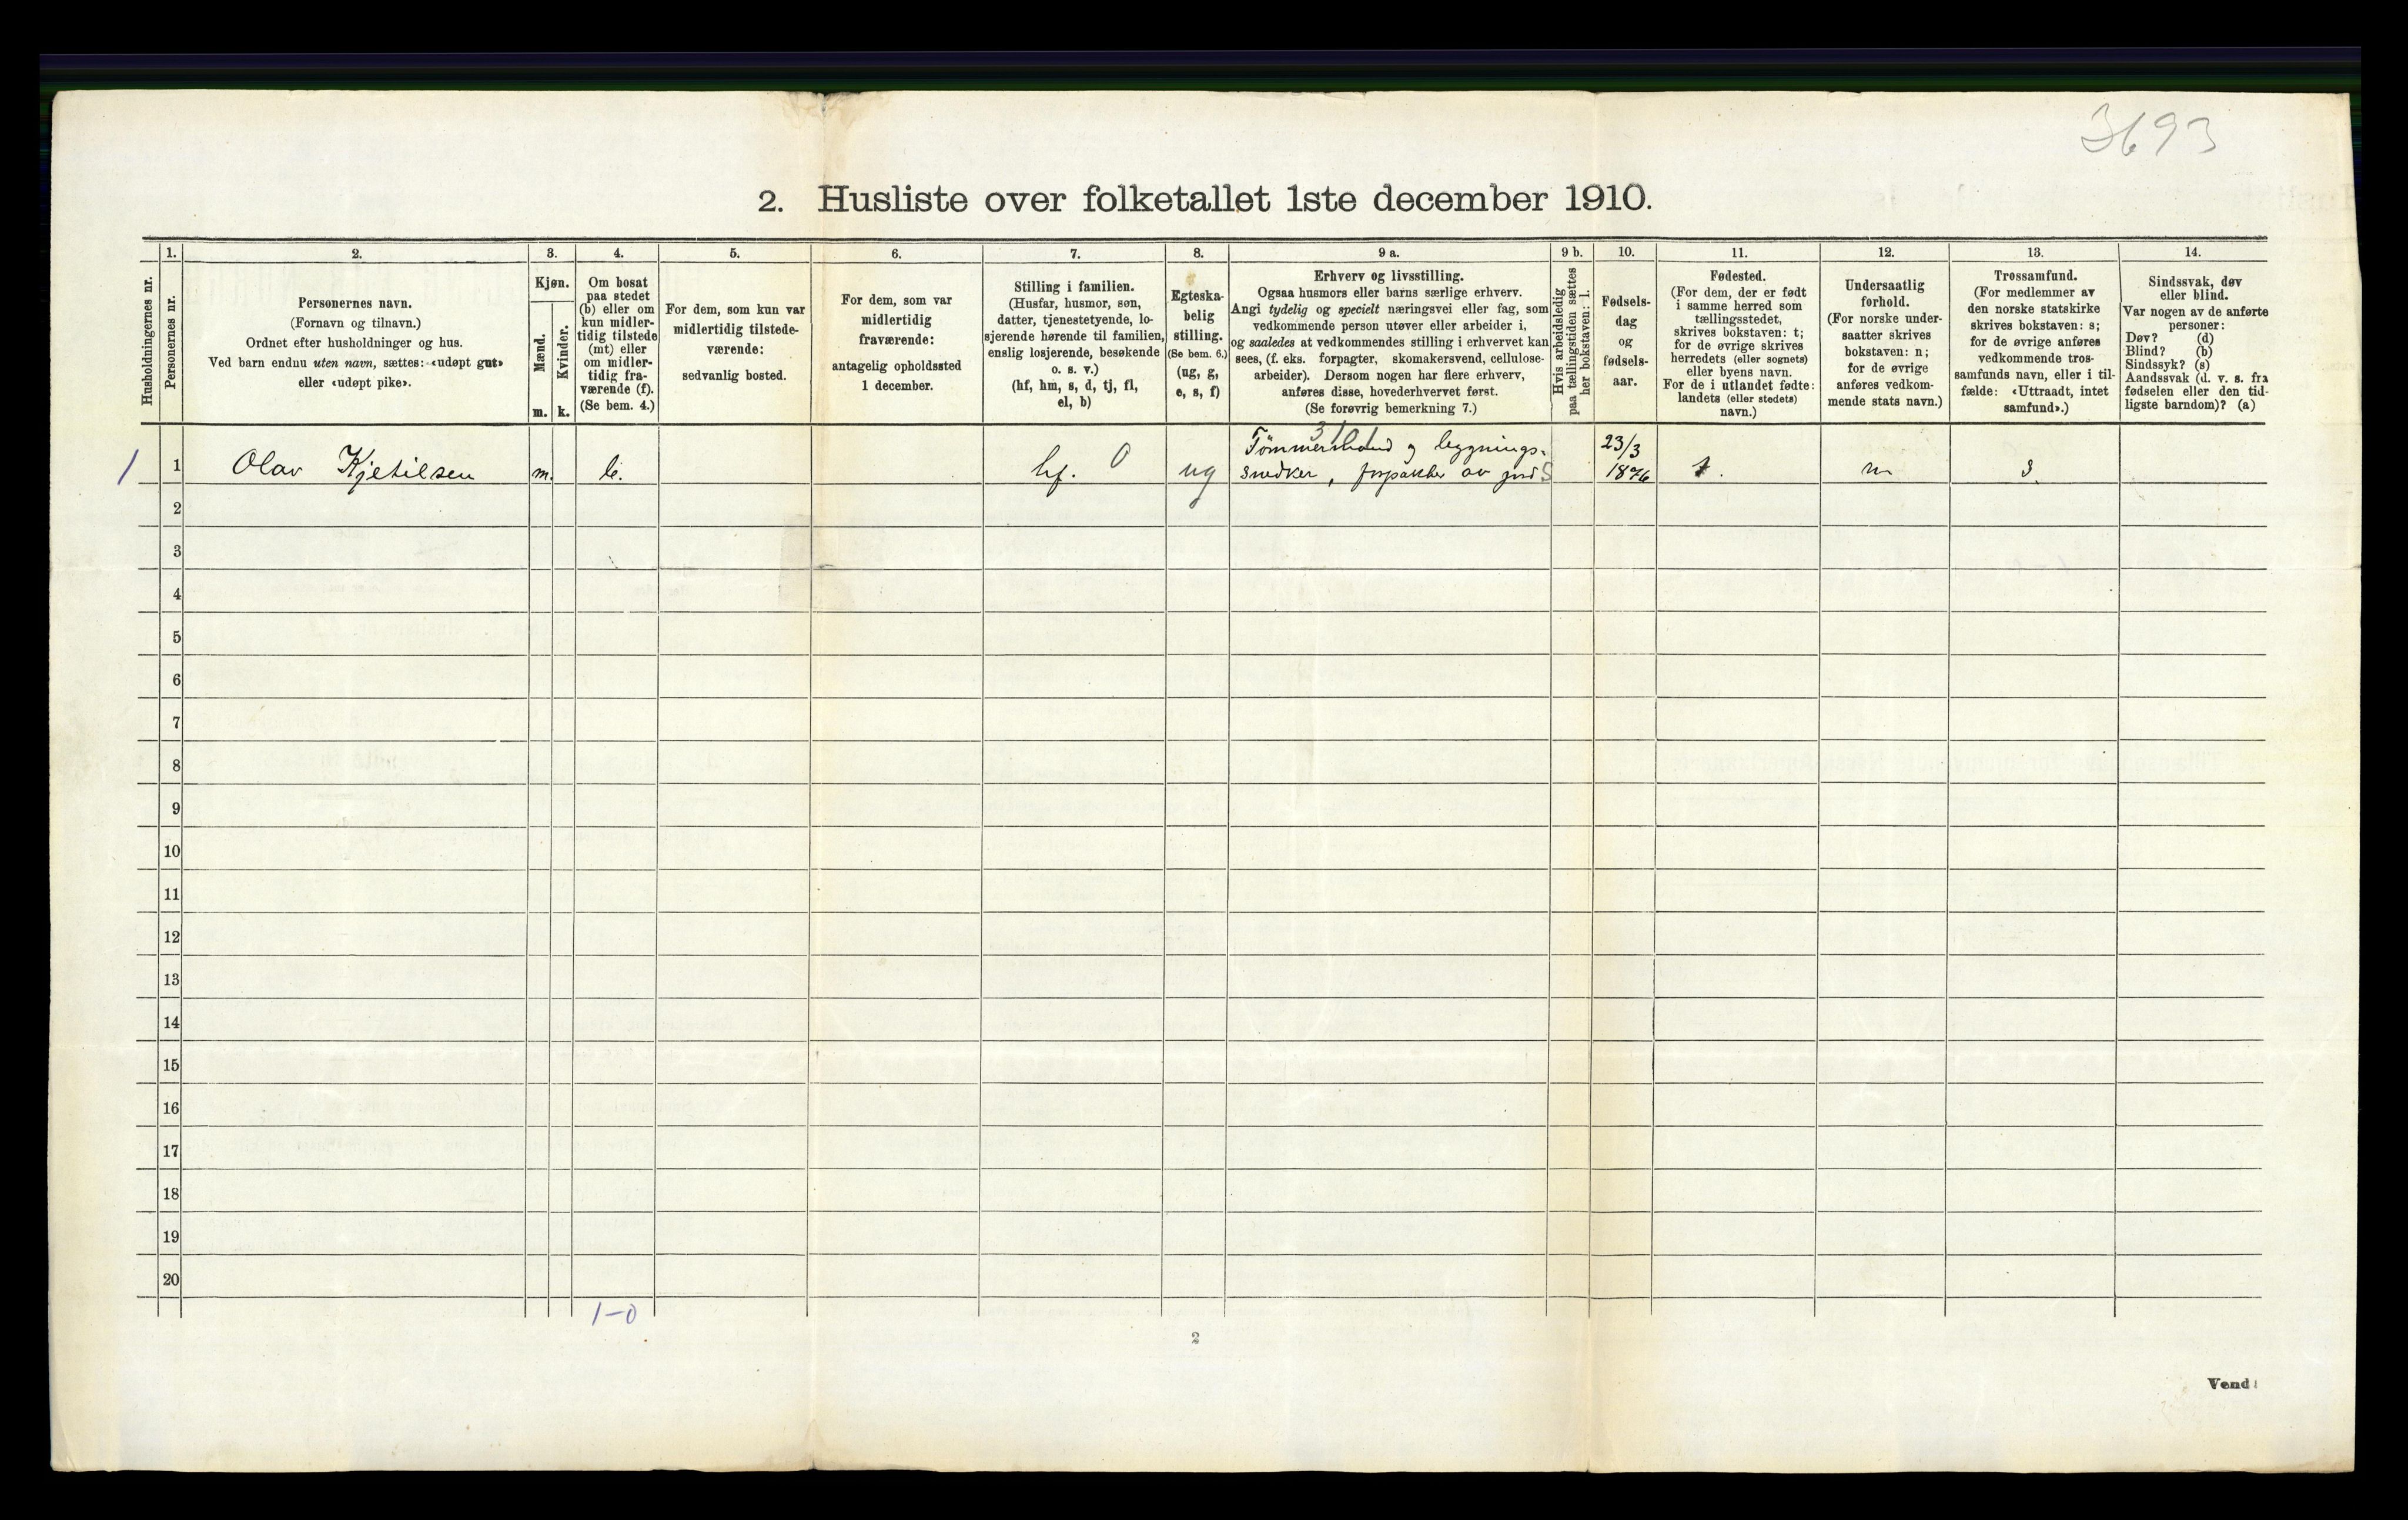 3693
2. Husliste over folketallet 1ste december 1910.
Husholdningernes nr.
1.
Personernes nr.
2.
Personernes navn.
(Fornavn og tilnavn.)
Ordnet efter husholdninger og hus.
Ved barn endnu uten navn, sættes: «udøpt gut»
eller «udøpt pike».
3.
Kjøn.
Mænd.
Kvinder.
m. k.
4.
Om bosat
paa stedet
(b) eller om
kun midler-
tidig tilstede
(mt) eller
om midler-
tidig fra-
værende (f).
(Se bem. 4.)
5.
For dem, som kun var
midlertidig tilstede-
værende:
sedvanlig bosted.
6.
For dem, som var
midlertidig
fraværende:
antagelig opholdssted
1 december.
7.
Stilling i familien.
(Husfar, husmor, søn,
datter, tjenestetyende, lo-
sjerende hørende til familien,
enslig losjerende, besøkende
o. s. v.)
(hf, hm, s, d, tj, fl,
el, b)
8.
Egteska-
belig
stilling.
(Se bem. 6.)
(ug, g,
e, s, f)
9 a.
Erhverv og livsstilling.
Ogsaa husmors eller barns særlige erhverv.
Angi tydelig og specielt næringsvei eller fag, som
vedkommende person utøver eller arbeider i,
og saaledes at vedkommendes stilling i erhvervet kan
sees, (f. eks. forpagter, skomakersvend, cellulose-
arbeider). Dersom nogen har flere erhverv,
anføres disse, hovederhvervet først.
(Se forøvrig bemerkning 7.)
9 b.
Hvis arbeidsledig
paa tællingstiden sættes
her bokstaven: l.
10.
Fødsels-
dag
og
fødsels-
aar.
11.
Fødested.
(For dem, der er født
i samme herred som
tællingsstedet,
skrives bokstaven: t;
for de øvrige skrives
herredets (eller sognets)
eller byens navn.
For de i utlandet fødte:
landets (eller stedets)
navn.)
12.
Undersaatlig
forhold.
(For norske under-
saatter skrives
bokstaven: n;
for de øvrige
anføres vedkom-
mende stats navn.)
13.
Trossamfund.
(For medlemmer av
den norske statskirke
skrives bokstaven: s;
for de øvrige anføres
vedkommende tros-
samfunds navn, eller i til-
fælde: «Uttraadt, intet
samfund».)
14.
Sindssvak, døv
eller blind.
Var nogen av de anførte
personer:
Døv? (d)
Blind? (b)
Sindssyk? (s)
Aandssvak (d. v. s. fra
fødselen eller den tid-
ligste barndom)? (a)
1 1 Olav Kjetilsen m. b. hf. 0 ug
Tømmermand og bygnings-
snedker, forpakter av jord S
23/3
1876
t. n s.
2
3
4
5
6
7
8
9
10
11
12
13
14
15
16
17
18
19
20
1-0
2
Vend!